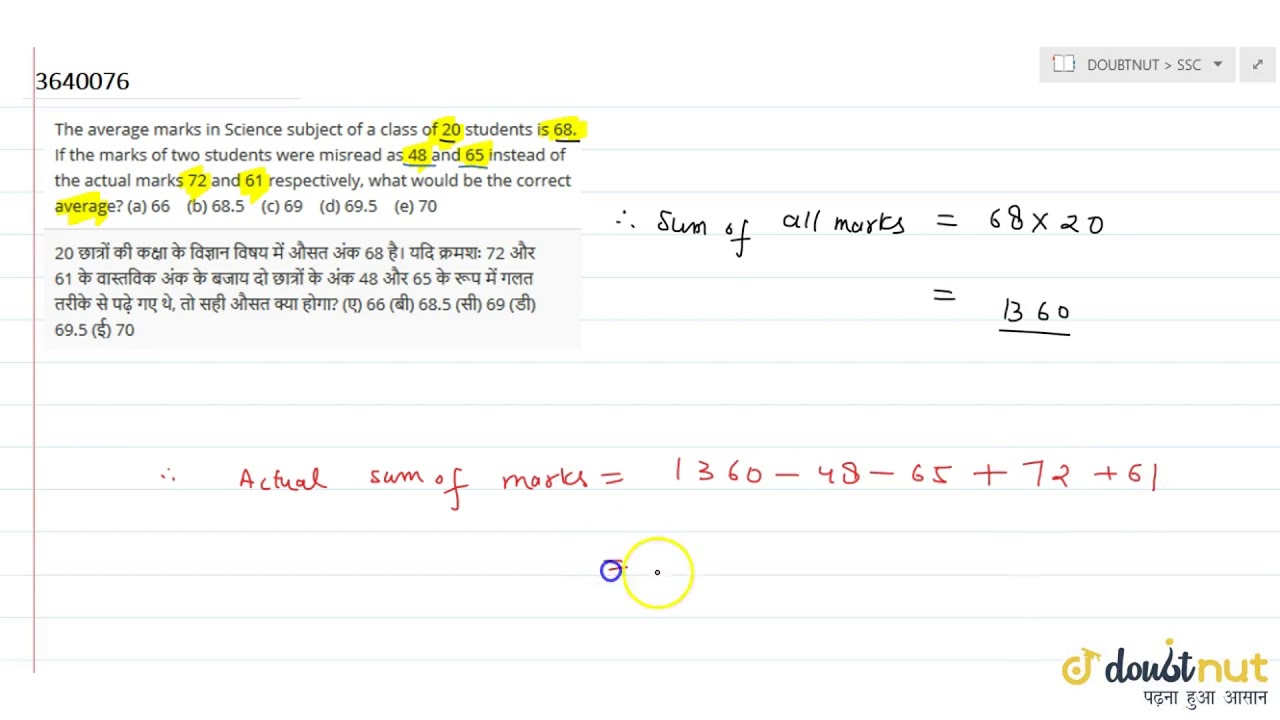 DOUBTNUT > SSC
3640076
The average marks in Science subject of a class of 20 students is 68.
If the marks of two students were misread as 48 and 65 instead of
the actual marks 72 and 61 respectively, what would be the correct
average? (a) 66 (b) 68.5 (c) 69 (d) 69.5 (e) 70
20 छात्रों की कक्षा के विज्ञान विषय में औसत अंक 68 है। यदि क्रमशः 72 और
61 के वास्तविक अंक के बजाय दो छात्रों के अंक 48 और 65 के रूप में गलत
तरीके से पढ़े गए थे, तो सही औसत क्या होगा? (ए) 66 (बी) 68.5 (सी) 69 (डी)
69.5 (ई) 70
∴ Sum of all marks = 68 × 20
= 1360
∴ Actual sum of marks = 1360 - 48 - 65 + 72 + 61
=
doubtnut
पढ़ना हुआ आसान